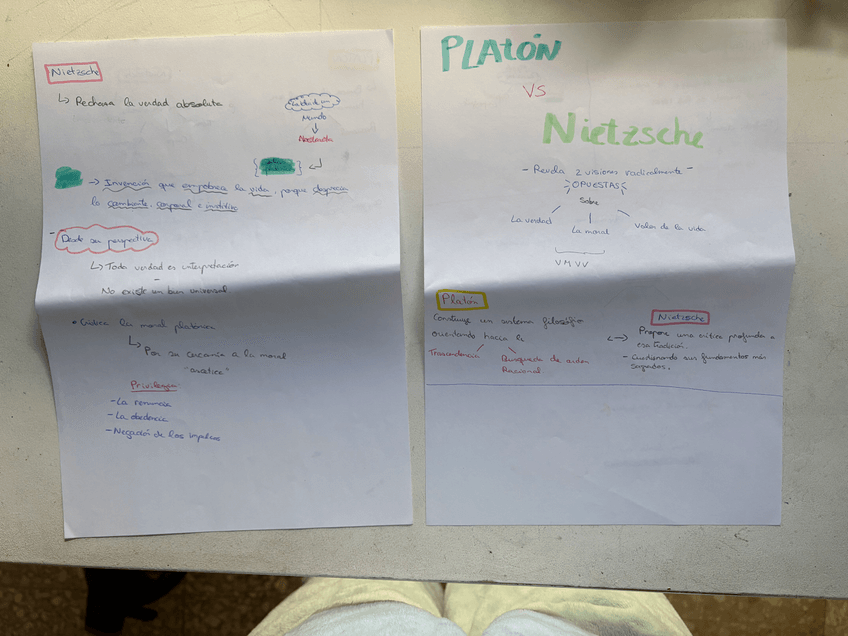 Nietzsche
↳ Rechaza la verdad absoluta
Mundo
↓
→ Invención que empobrece la vida, porque desprecia
lo cambiante, corporal e instintivo
- Desde su perspectiva
↳ Toda verdad es interpretación
-
No existe un bien universal
• Critica la moral platónica
↳ Por su cercanía a la moral
"ascética"
Privilegia
- La renuncia
- La obediencia
- Negación de los impulsos
PLATÓN
VS
Nietzsche
- Revela 2 visiones radicalmente -
OPUESTAS
Sobre
La verdad
La moral
Valor de la vida
V M V V
Platón
Construye un sistema filosófico
orientado hacia la
Trascendencia
Búsqueda de orden
Racional.
Nietzsche
Propone una crítica profunda a
esa tradición.
- Cuestionando sus fundamentos más
sagrados.